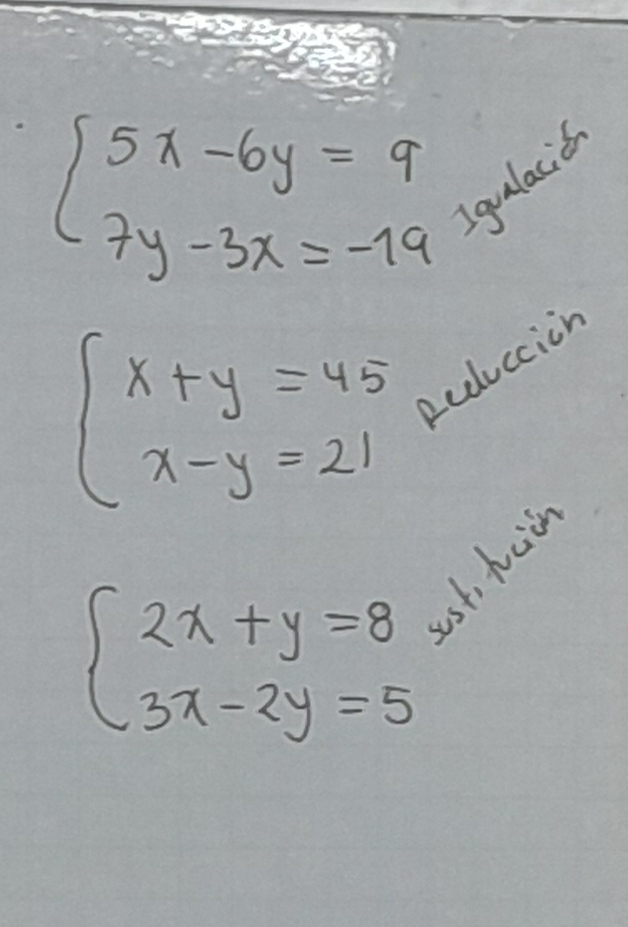 5x - 6y = 9
7y - 3x = -19
Igualación
x + y = 45
x - y = 21
Reducción
2x + y = 8
3x - 2y = 5
sustitución